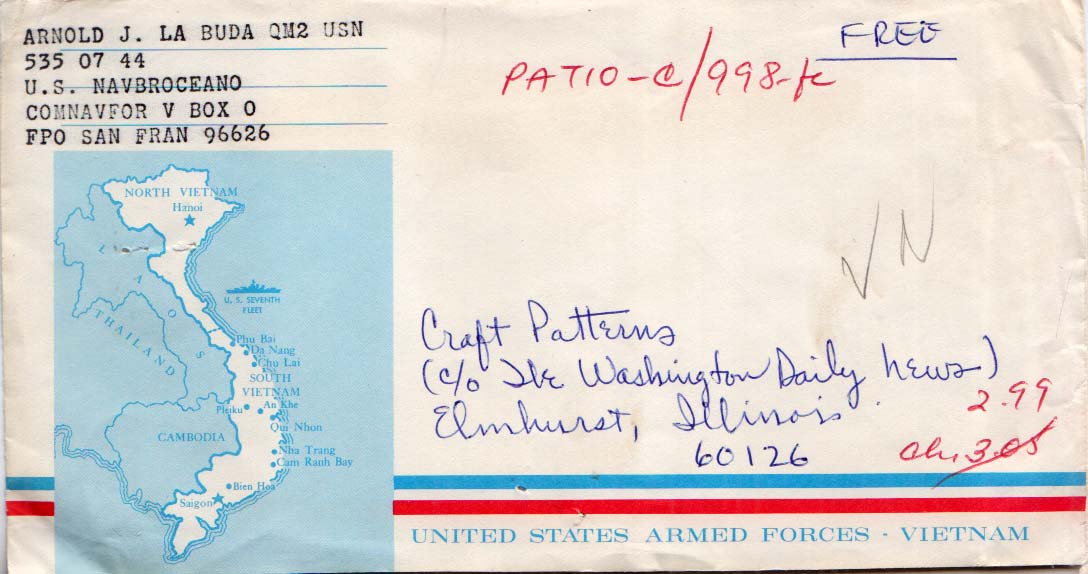 ARNOLD J. LA BUDA QM2 USN
535 07 44
U.S. NAVBROCEANO
COMNAVFOR V BOX O
FPO SAN FRAN 96626
FREE
PATIO-C/998-fc
VN
NORTH VIETNAM
Hanoi
LAOS
THAILAND
U. S. SEVENTH
FLEET
Phu Bai
Da Nang
Chu Lai
SOUTH
VIETNAM
Pleiku
An Khe
Qui Nhon
CAMBODIA
Nha Trang
Cam Ranh Bay
Bien Hoa
Saigon
Craft Patterns
(c/o The Washington Daily News)
Elmhurst, Illinois
60126
2.99
3.05
UNITED STATES ARMED FORCES - VIETNAM